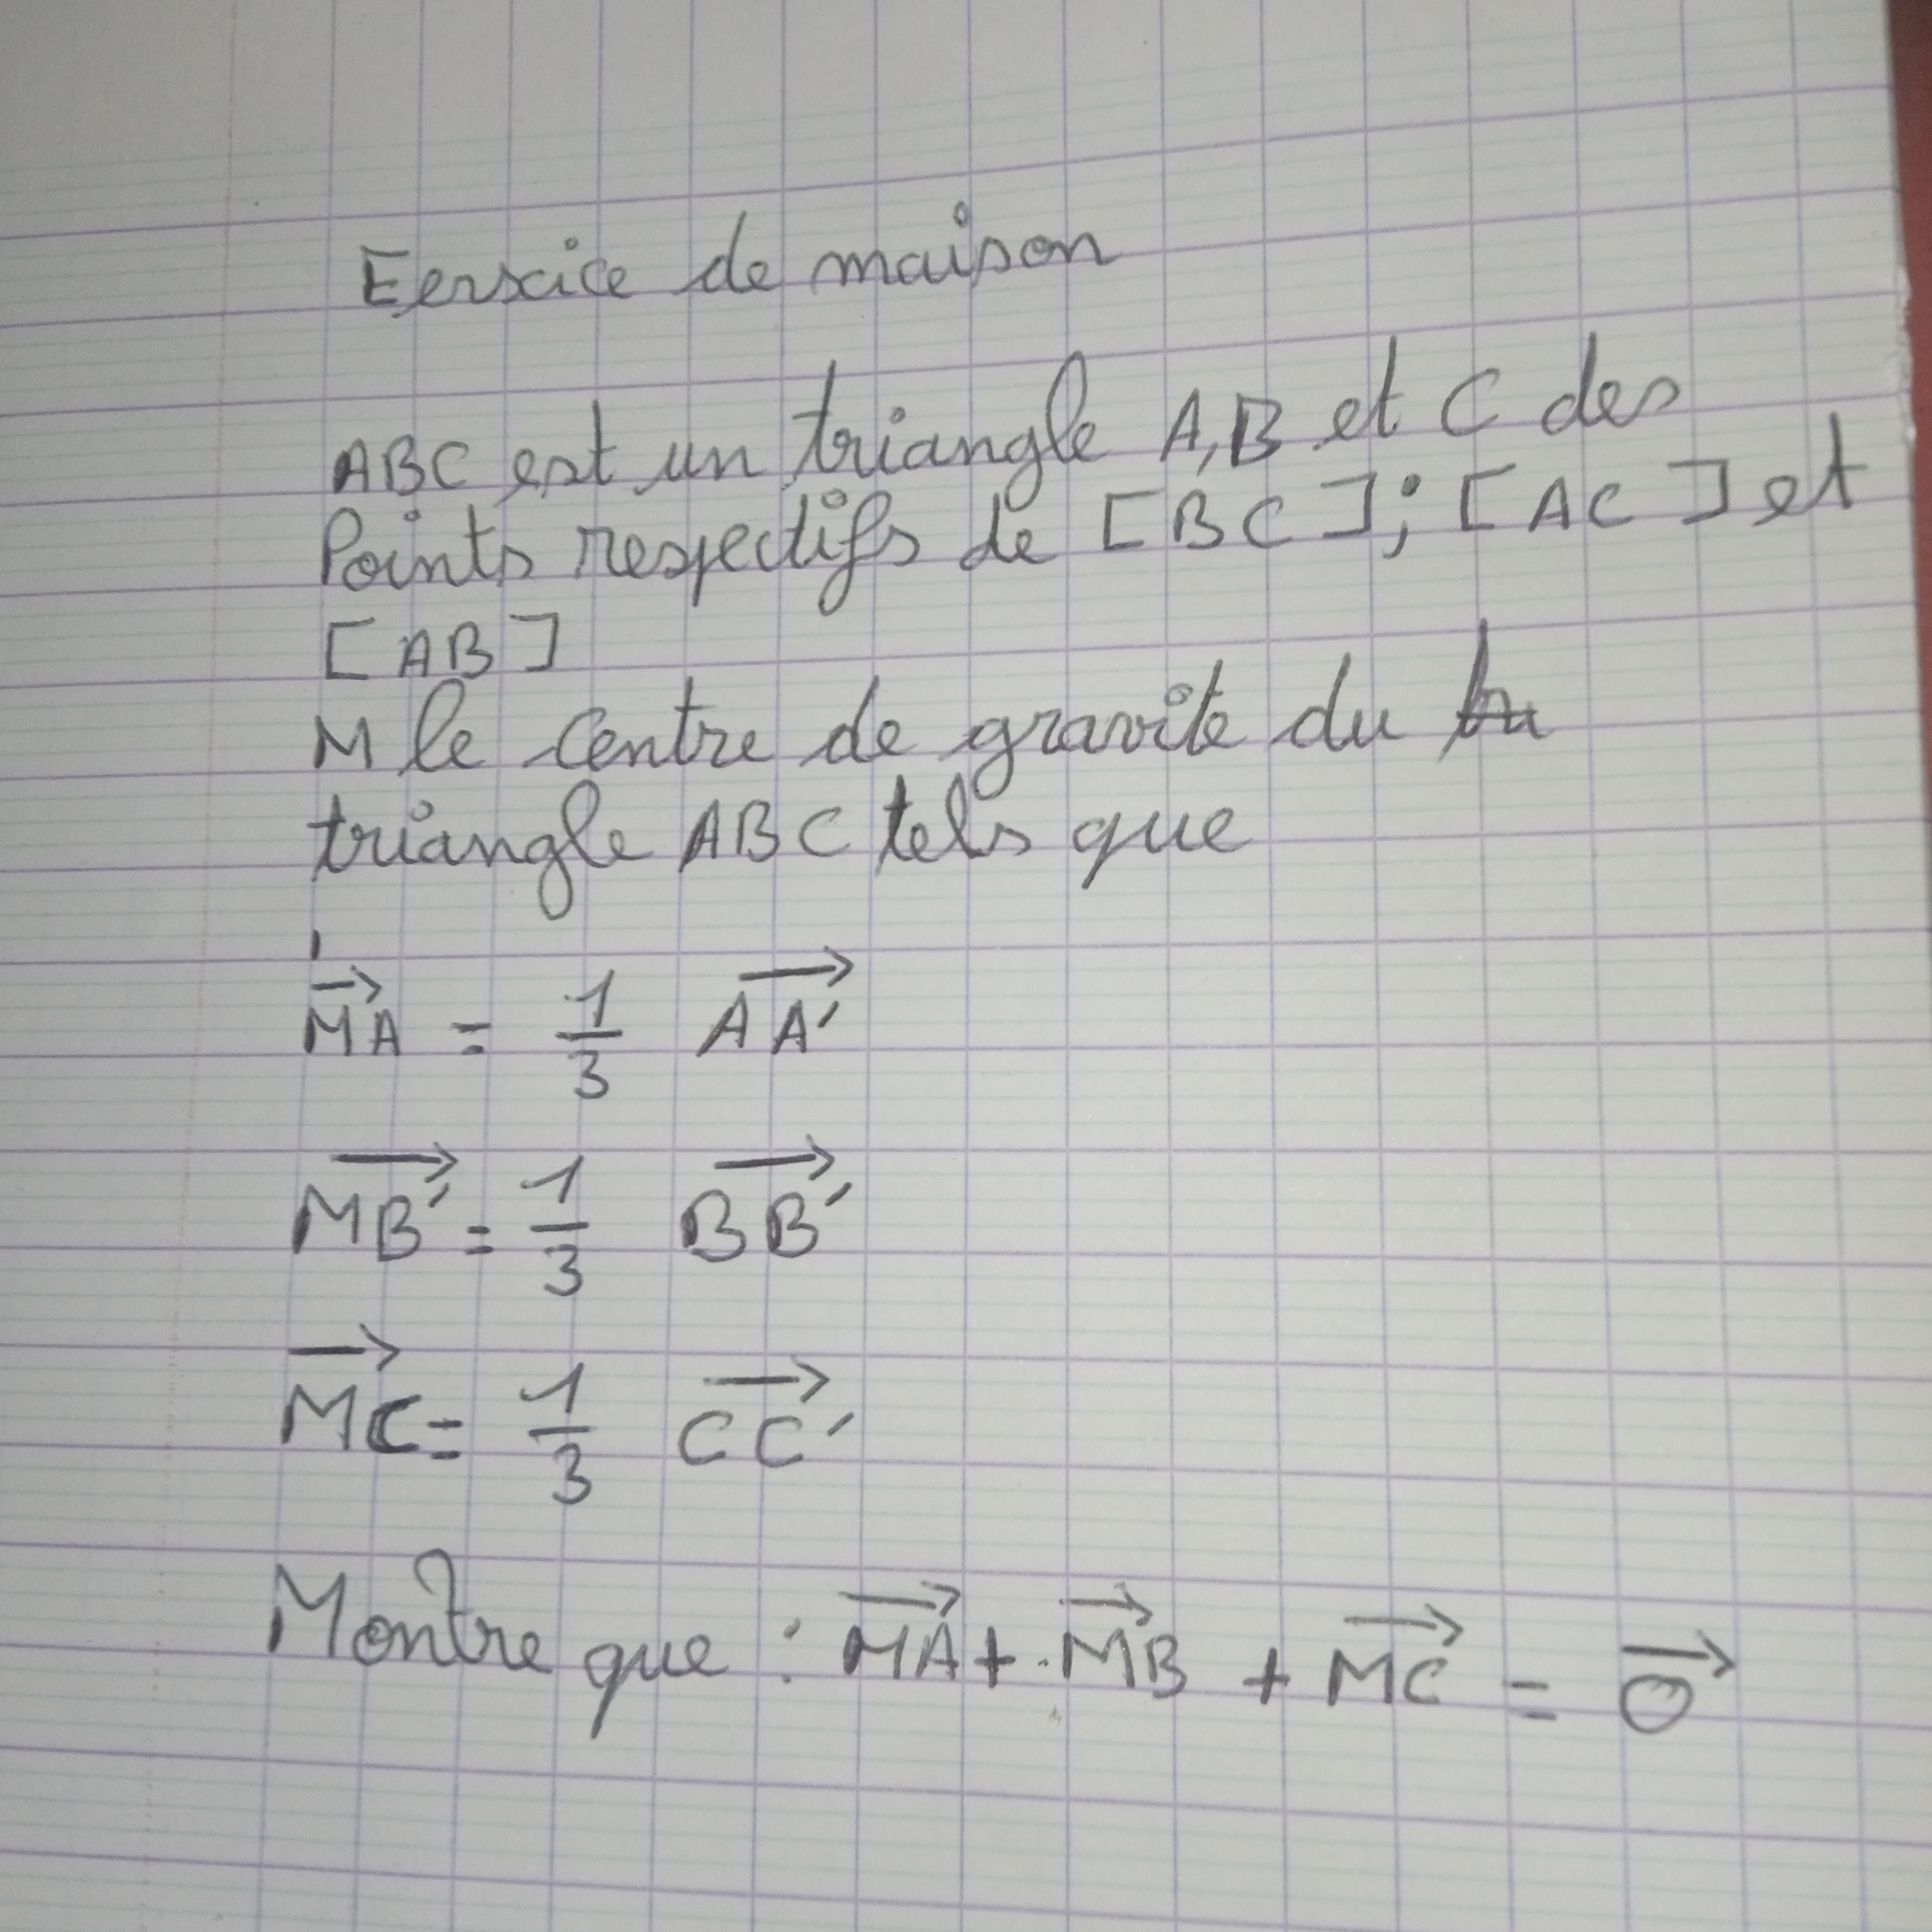 Eerxice de maison
ABC est un triangle A,B et C des
Points respectifs de [BC]; [AC] et
[AB]
M le centre de gravite du
triangle ABC tels que
MA = 1/3 AA'
MB' = 1/3 BB'
MC = 1/3 CC'
Montre que : MA + MB + MC = 0